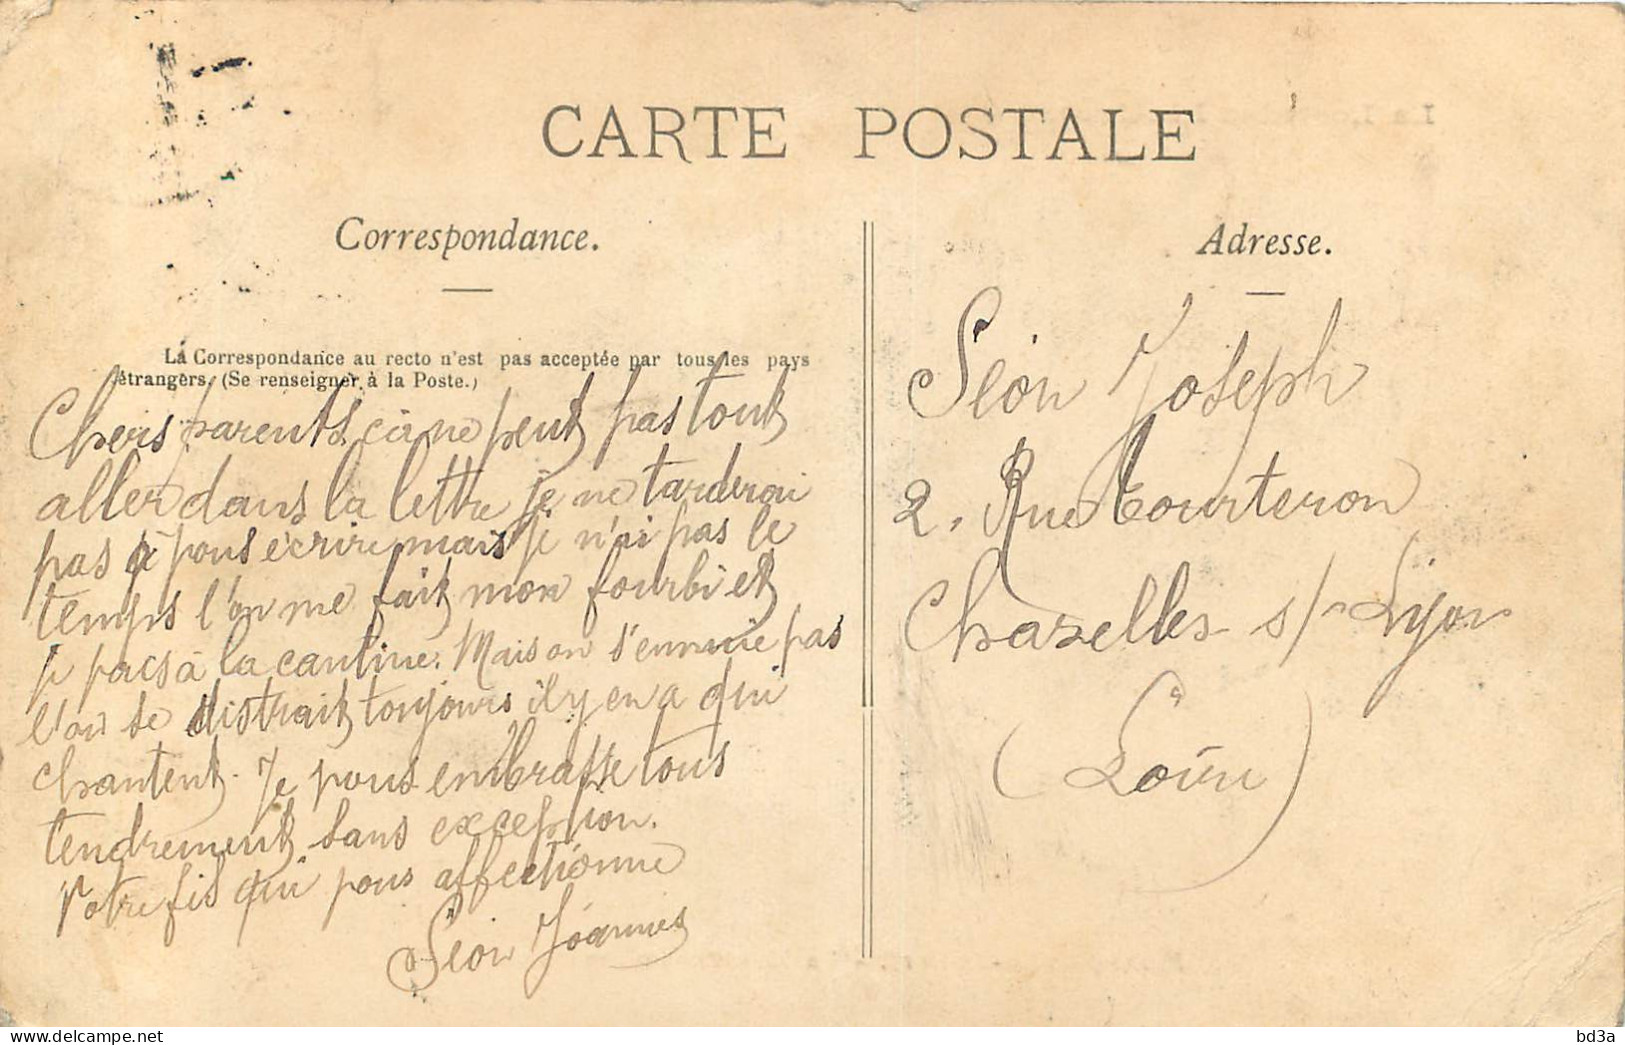 CARTE POSTALE
Correspondance.
La Correspondance au recto n'est pas acceptée par tous les pays
étrangers. (Se renseigner à la Poste.)
Chers parents, ça ne peut pas tout
aller dans la lettre je ne tarderai
pas à vous écrire mais je n'ai pas le
temps l'on me fait mon fourbi et
je pars à la cantine. Mais on s'ennuie pas
l'on se distrait toujours il y en a qui
chantent. Je vous embrasse tous
tendrement sans exception.
Votre fils qui vous affectionne
Séon Jóannes
Adresse.
Séon Joseph
2, Rue Tourteron
Chazelles s/ Lyon
(Loire)
delcampe.net
bd3a